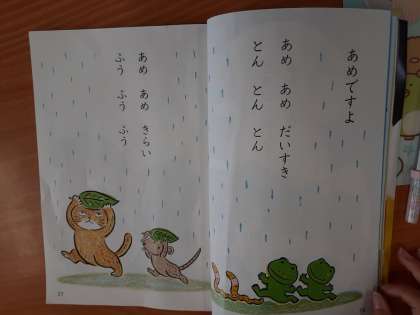 あめですよ
あめ　あめ　だいすき
とん　とん　とん
あめ　あめ　きらい
ふう　ふう　ふう
27